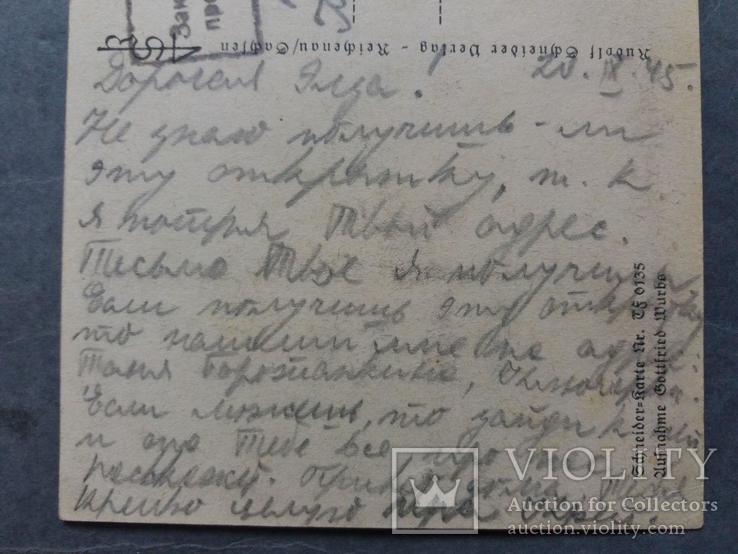 Rudolf Schneider Verlag - Reichenau/Sachsen
Зак
про
Дорогая Элза. 20.IX.45.
Не знаю получишь-ли
эту открытку, т. к.
я потеря твой адрес.
Письмо Твое я получил
Если получишь эту открытку,
то напиши мне на адрес:
Таня
Если можешь, то зайди к ней
и она Тебе все
расскажу.
Крепко целую
Schneider-Karte Nr. Tf 0135
Aufnahme Gottfried Wurbs
VIOLITY
Auction for Collectors
auction.violity.com